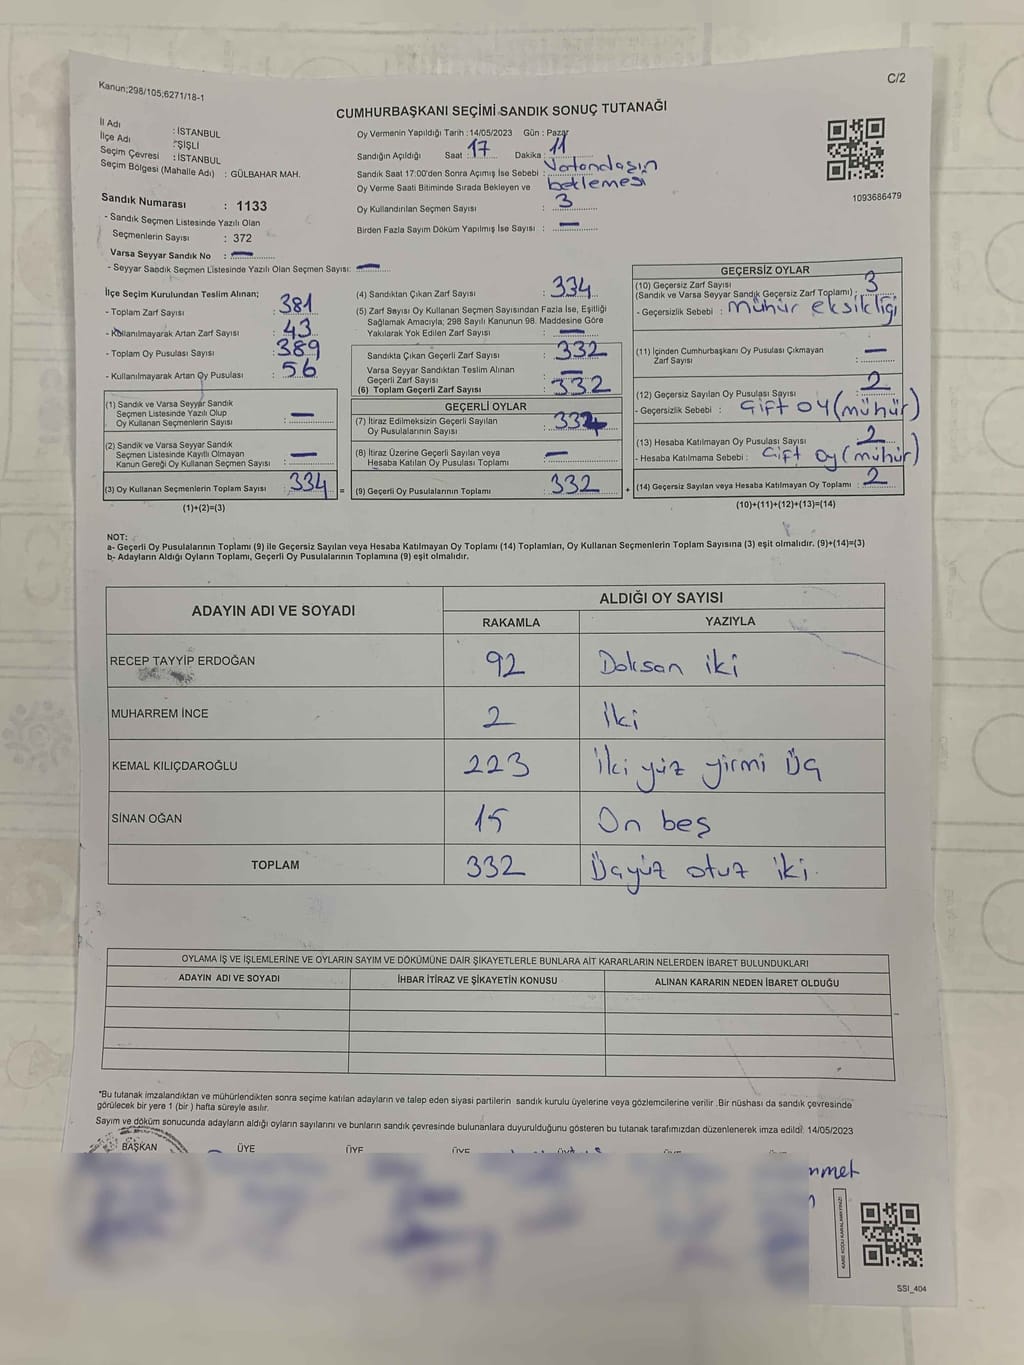 Kanun;298/105;6271/18-1
C/2
CUMHURBAŞKANI SEÇİMİ SANDIK SONUÇ TUTANAĞI
İl Adı : İSTANBUL
İlçe Adı : ŞİŞLİ
Seçim Çevresi : İSTANBUL
Seçim Bölgesi (Mahalle Adı) : GÜLBAHAR MAH.
Sandık Numarası : 1133
- Sandık Seçmen Listesinde Yazılı Olan
Seçmenlerin Sayısı : 372
Varsa Seyyar Sandık No : —
- Seyyar Sandık Seçmen Listesinde Yazılı Olan Seçmen Sayısı: —
Oy Vermenin Yapıldığı Tarih :14/05/2023 Gün : Pazar
Sandığın Açıldığı Saat : 17 Dakika : 11
Sandık Saat 17:00'den Sonra Açımış İse Sebebi : Vatandaşın
Oy Verme Saati Bitiminde Sırada Bekleyen ve beklemesi
Oy Kullandırılan Seçmen Sayısı : 3
Birden Fazla Sayım Döküm Yapılmış İse Sayısı : —
1093686479
İlçe Seçim Kurulundan Teslim Alınan;
- Toplam Zarf Sayısı : 381
- Kullanılmayarak Artan Zarf Sayısı : 43
- Toplam Oy Pusulası Sayısı : 389
- Kullanılmayarak Artan Oy Pusulası : 56
(1) Sandık ve Varsa Seyyar Sandık
Seçmen Listesinde Yazılı Olup
Oy Kullanan Seçmenlerin Sayısı : —
(2) Sandık ve Varsa Seyyar Sandık
Seçmen Listesinde Kayıtlı Olmayan
Kanun Gereği Oy Kullanan Seçmen Sayısı : —
(3) Oy Kullanan Seçmenlerin Toplam Sayısı : 334 =
(1)+(2)=(3)
(4) Sandıktan Çıkan Zarf Sayısı : 334
(5) Zarf Sayısı Oy Kullanan Seçmen Sayısından Fazla İse, Eşitliği
Sağlamak Amacıyla; 298 Sayılı Kanunun 98. Maddesine Göre
Yakılarak Yok Edilen Zarf Sayısı : —
Sandıkta Çıkan Geçerli Zarf Sayısı : 332
Varsa Seyyar Sandıktan Teslim Alınan
Geçerli Zarf Sayısı : —
(6) Toplam Geçerli Zarf Sayısı : 332
GEÇERLİ OYLAR
(7) İtiraz Edilmeksizin Geçerli Sayılan
Oy Pusulalarının Sayısı : 332
(8) İtiraz Üzerine Geçerli Sayılan veya
Hesaba Katılan Oy Pusulası Toplamı : —
(9) Geçerli Oy Pusulalarının Toplamı : 332 +
GEÇERSİZ OYLAR
(10) Geçersiz Zarf Sayısı
(Sandık ve Varsa Seyyar Sandık Geçersiz Zarf Toplamı) : 3
- Geçersizlik Sebebi : mühür eksikliği
(11) İçinden Cumhurbaşkanı Oy Pusulası Çıkmayan
Zarf Sayısı : —
(12) Geçersiz Sayılan Oy Pusulası Sayısı : 2
- Geçersizlik Sebebi : Çift oy (mühür)
(13) Hesaba Katılmayan Oy Pusulası Sayısı : 2
- Hesaba Katılmama Sebebi : Çift oy (mühür)
(14) Geçersiz Sayılan veya Hesaba Katılmayan Oy Toplamı : 2
(10)+(11)+(12)+(13)=(14)
NOT:
a- Geçerli Oy Pusulalarının Toplamı (9) ile Geçersiz Sayılan veya Hesaba Katılmayan Oy Toplamı (14) Toplamları, Oy Kullanan Seçmenlerin Toplam Sayısına (3) eşit olmalıdır. (9)+(14)=(3)
b- Adayların Aldığı Oyların Toplamı, Geçerli Oy Pusulalarının Toplamına (9) eşit olmalıdır.
ADAYIN ADI VE SOYADI ALDIĞI OY SAYISI
RAKAMLA YAZIYLA
RECEP TAYYİP ERDOĞAN 92 Doksan iki
MUHARREM İNCE 2 İki
KEMAL KILIÇDAROĞLU 223 İki yüz yirmi Üç
SİNAN OĞAN 15 On beş
TOPLAM 332 Üçyüz otuz iki.
OYLAMA İŞ VE İŞLEMLERİNE VE OYLARIN SAYIM VE DÖKÜMÜNE DAİR ŞİKAYETLERLE BUNLARA AİT KARARLARIN NELERDEN İBARET BULUNDUKLARI
ADAYIN ADI VE SOYADI İHBAR İTİRAZ VE ŞİKAYETİN KONUSU ALINAN KARARIN NEDEN İBARET OLDUĞU
*Bu tutanak imzalandıktan ve mühürlendikten sonra seçime katılan adayların ve talep eden siyasi partilerin sandık kurulu üyelerine veya gözlemcilerine verilir .Bir nüshası da sandık çevresinde
görülecek bir yere 1 (bir ) hafta süreyle asılır.
Sayım ve döküm sonucunda adayların aldığı oyların sayılarını ve bunların sandık çevresinde bulunanlara duyurulduğunu gösteren bu tutanak tarafımızdan düzenlenerek imza edildi. 14/05/2023
BAŞKAN ÜYE ÜYE ÜYE
SSI_404